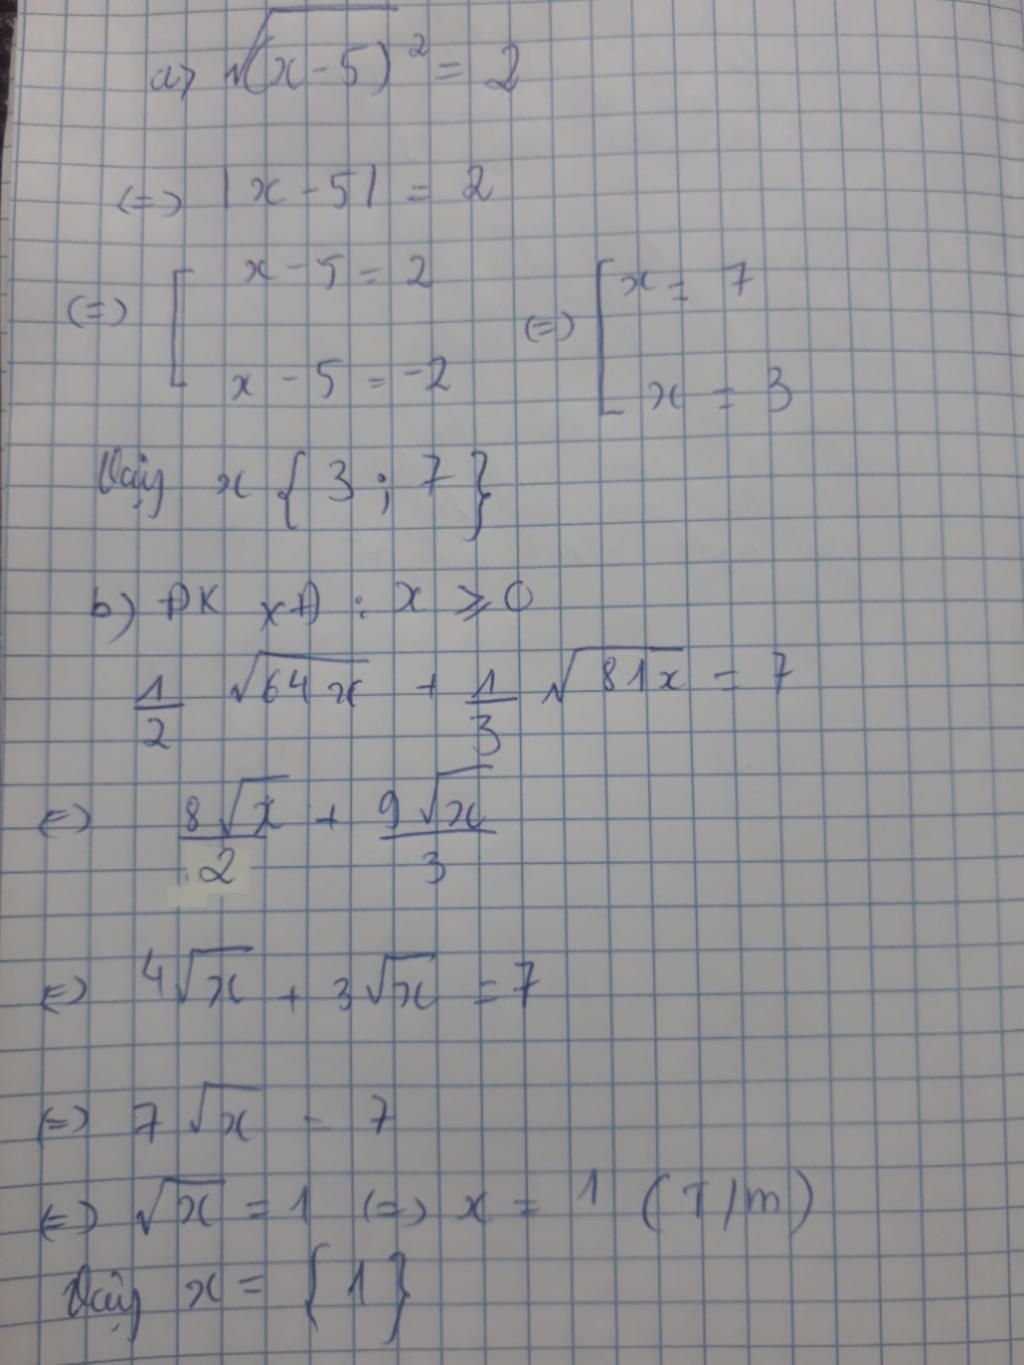 a) √(x-5)² = 2
(=) |x-5| = 2
(=) [ x-5 = 2 (=) [ x = 7
x - 5 = -2 x = 3
Vậy x { 3 ; 7 }
b) ĐK XĐ : x ≥ 0
1/2 √64x + 1/3 √81x = 7
(=) 8√x/2 + 9√x/3
(=) 4√x + 3√x = 7
(=) 7√x = 7
(=) √x = 1 (=) x = 1 (T/m)
Vậy x = { 1 }